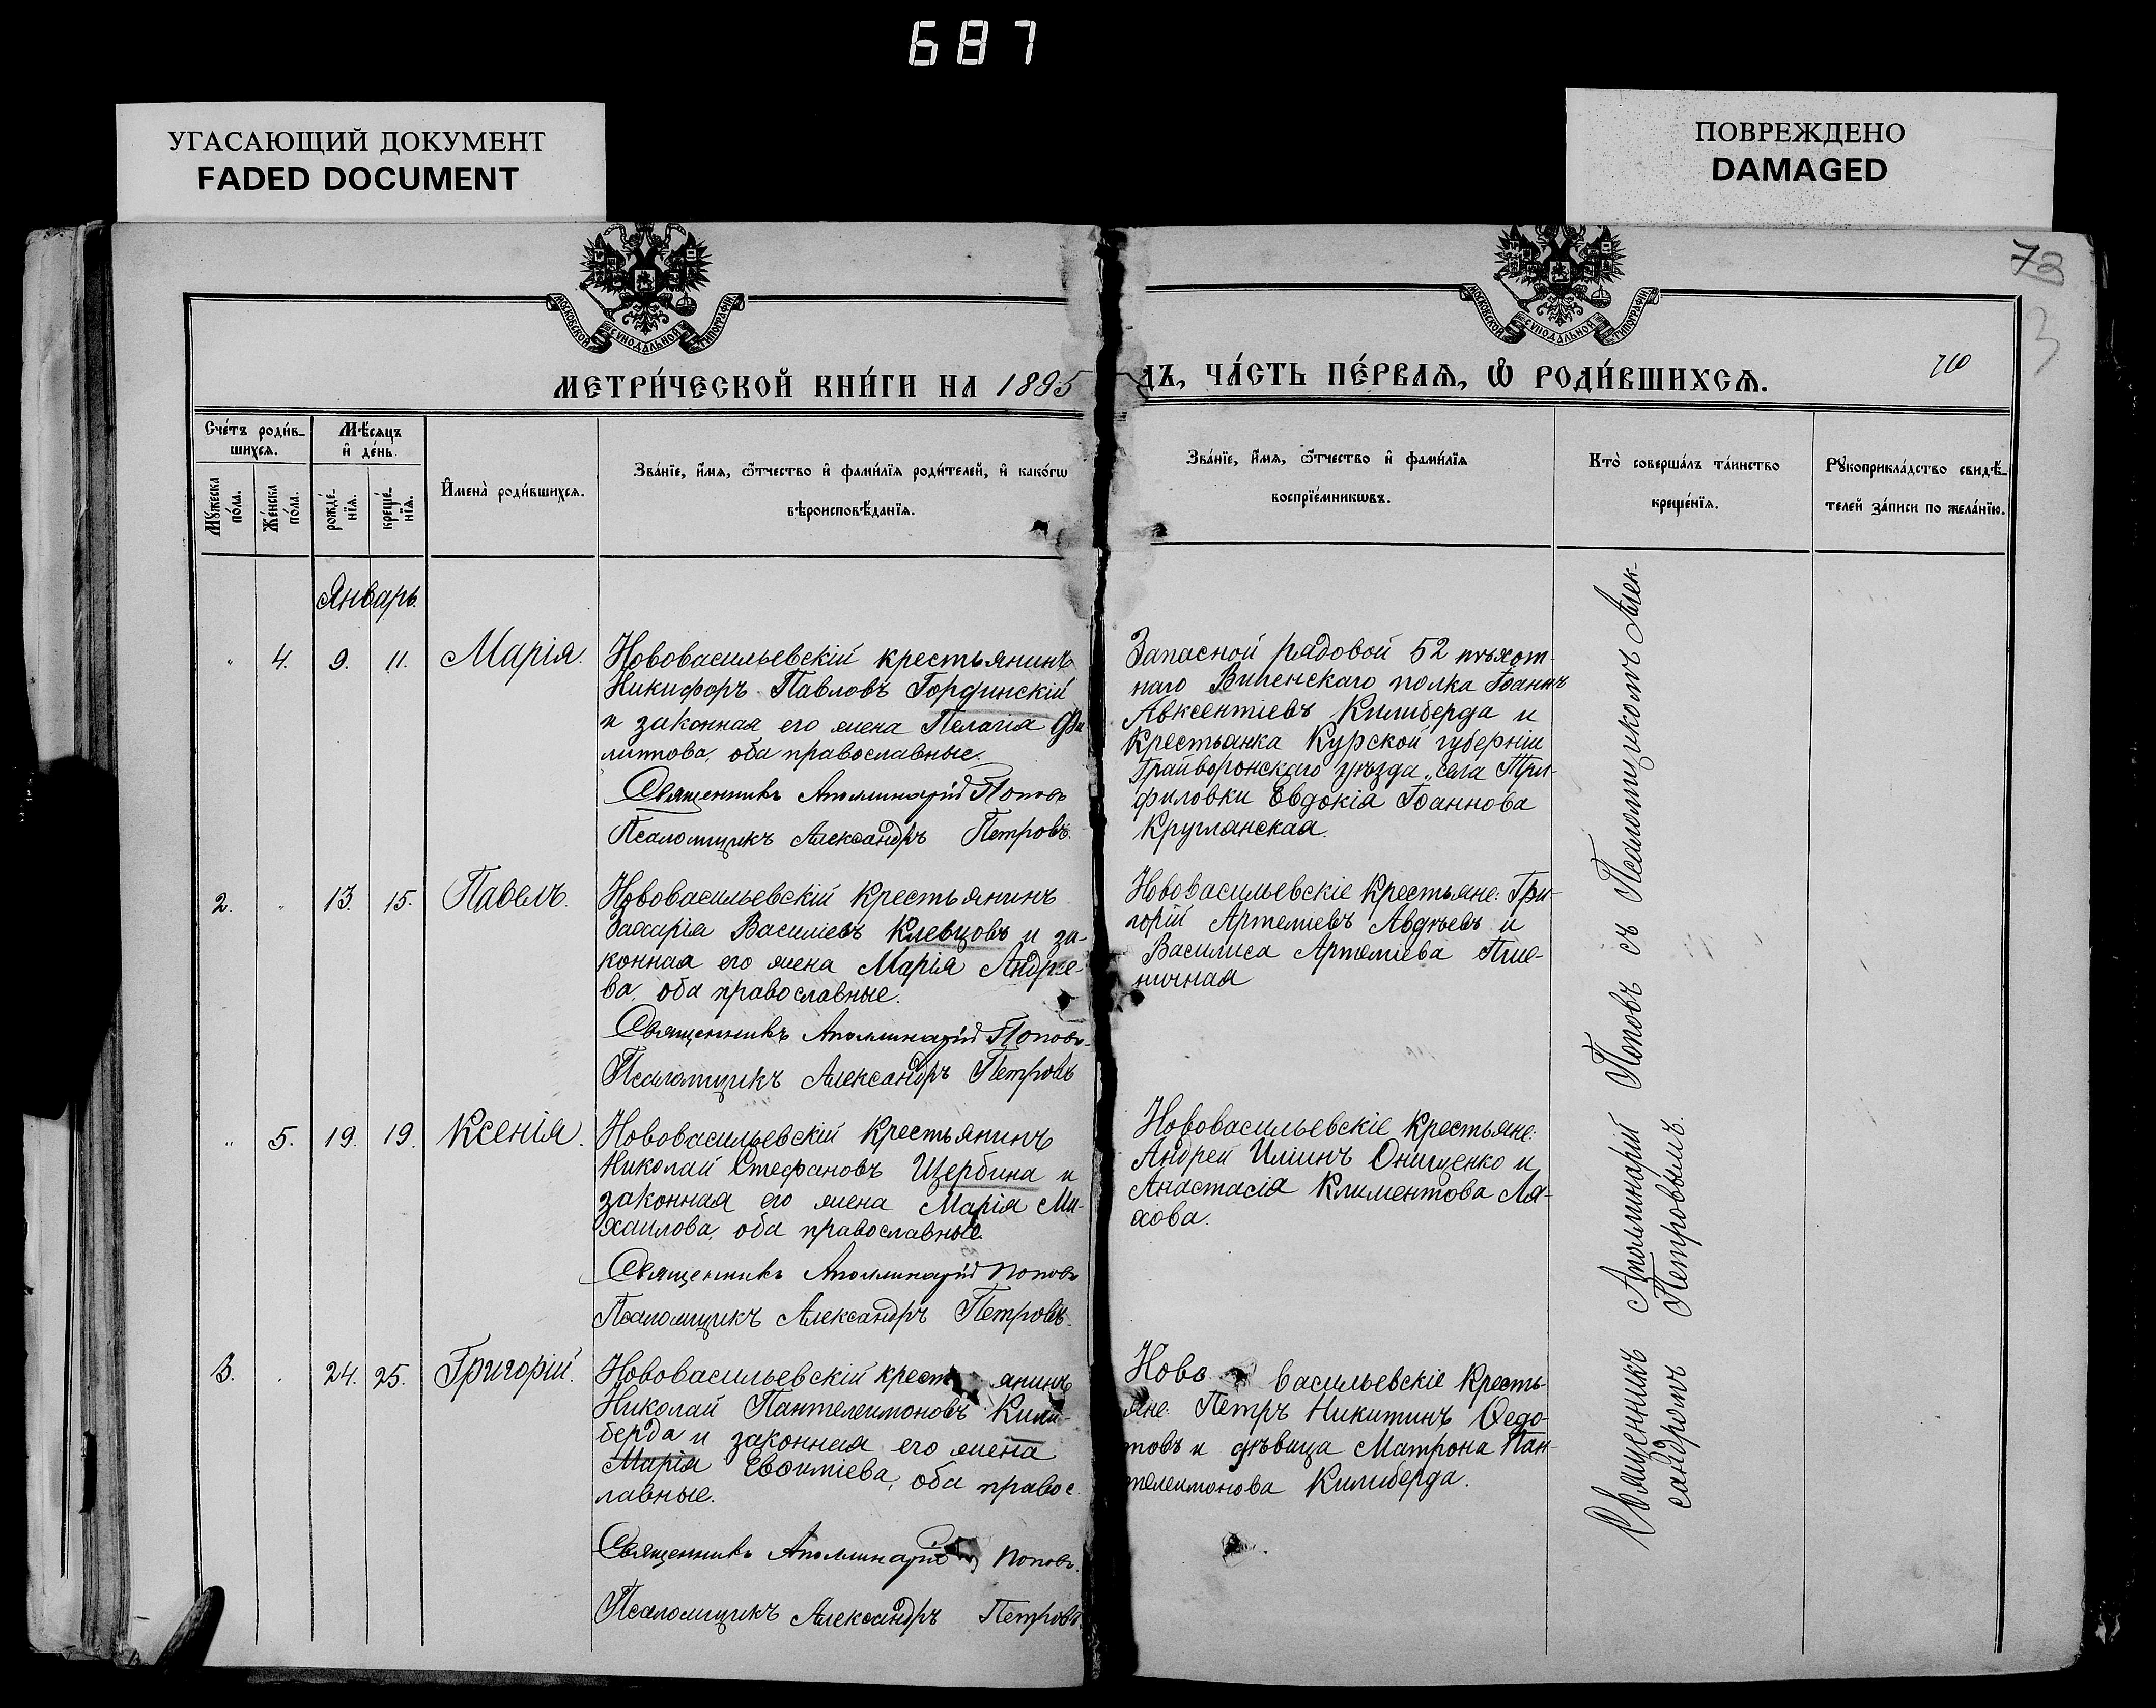 687
УГАСАЮЩИЙ ДОКУМЕНТ
FADED DOCUMENT
ПОВРЕЖДЕНО
DAMAGED
МОСКОВСКОЙ СУНОДАЛЬНОЙ ТИПОГРАФІИ
МОСКОВСКОЙ СУНОДАЛЬНОЙ ТИПОГРАФІИ
73
3
МЕТРИ́ЧЕСКОЙ КНИ́ГИ НА 1895
ДЪ, ЧА́СТЬ ПЕ́РВАѦ, Ѡ҆ РОДИ́ВШИХСѦ.
Сче́тъ роди́в-
шихсѧ.
Мꙋ́жеска
по́ла.
Же́нска
по́ла.
Мѣ́сѧцъ
и҆ де́нь.
рожде́-
нїѧ.
креще́-
нїѧ.
И҆мена̀ роди́вшихсѧ.
Зва́нїе, и҆́мѧ, ѻ҆́тчество и҆ фами́лїѧ роди́телей, и҆ како́гѡ
вѣроисповѣ́данїѧ.
Зва́нїе, и҆́мѧ, ѻ҆́тчество и҆ фами́лїѧ
воспрїе́мникѡвъ.
Кто̀ соверша́лъ та́инство
креще́нїѧ.
Рꙋкоприкла́дство свидѣ́-
телей за́писи по жела́нїю.
Январь.
" 4. 9. 11. Марія.
Нововасильевскій крестьянинъ
Никифоръ Павловъ Гординскій
и законная его жена Пелагія Фи
липпова, оба православные.
Священникъ Аполлинарій Поповъ
Псаломщикъ Александръ Петровъ.
Запасной рядовой 52 пѣхот-
наго Виленскаго полка Іоаннъ
Авксентіевъ Килиберда и
крестьянка Курской губерніи
Грайворонскаго уѣзда, села Три-
филовки Евдокія Іоаннова
Круглянская.
2. " 13. 15. Павелъ.
Нововасильевскій крестьянинъ
Захарія Василіевъ Клевцовъ и за-
конная его жена Марія Андрее-
ва, оба православные.
Священникъ Аполлинарій Поповъ
Псаломщикъ Александръ Петровъ
Нововасильевскіе крестьяне: Гри-
горій Артеміевъ Авдѣевъ и
Василиса Артеміева Пше-
ничная
" 5. 19. 19. Ксенія.
Нововасильевскій крестьянинъ
Николай Стефановъ Щербина и
законная его жена Марія Ми-
хаилова, оба православные.
Священникъ Аполлинарій Поповъ
Псаломщикъ Александръ Петровъ.
Нововасильевскіе крестьяне:
Андрей Иліинъ Онищенко и
Анастасія Климентова Ля-
хова.
3. " 24. 25. Григорій.
Нововасильевскій крестьянинъ
Николай Пантелеимоновъ Кили-
берда и законная его жена
Марія Евѳиміева, оба правос
лавные.
Священникъ Аполлинарій Поповъ.
Псаломщикъ Александръ Петровъ.
Ново васильевскіе кресть-
яне: Петръ Никитинъ Ѳедо-
товъ и дѣвица Матрона Пан-
телеимонова Килиберда.
Священникъ Аполлинарій Поповъ съ Псаломщикомъ Алек-
сандромъ Петровымъ.